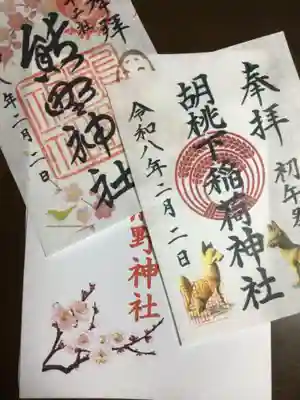 奉拝
熊野神社
年二月二日
奉拝
初午祭
胡桃下稲荷神社
令和八年二月二日
野神社